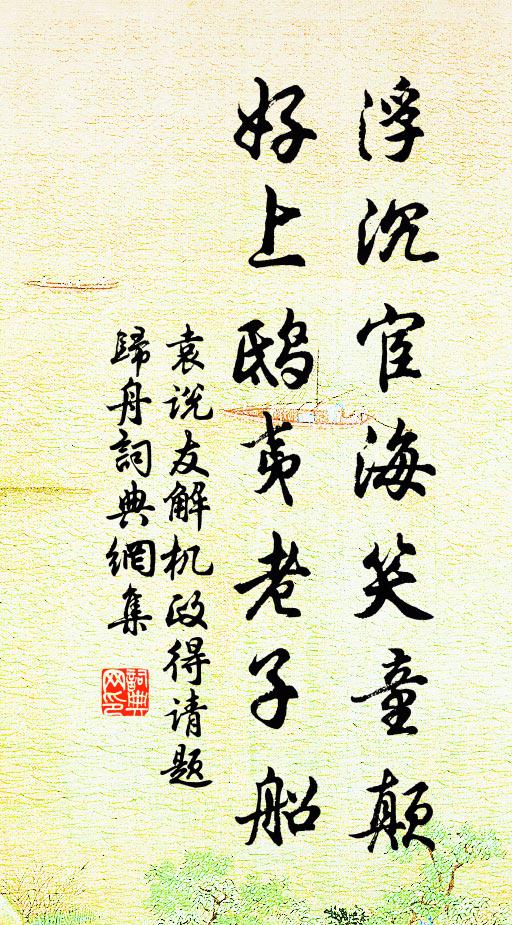 浮沉宦海笑童颠
好上鸱夷老子船
袁说友解机政得请题
歸舟詞典網集
詞典网印